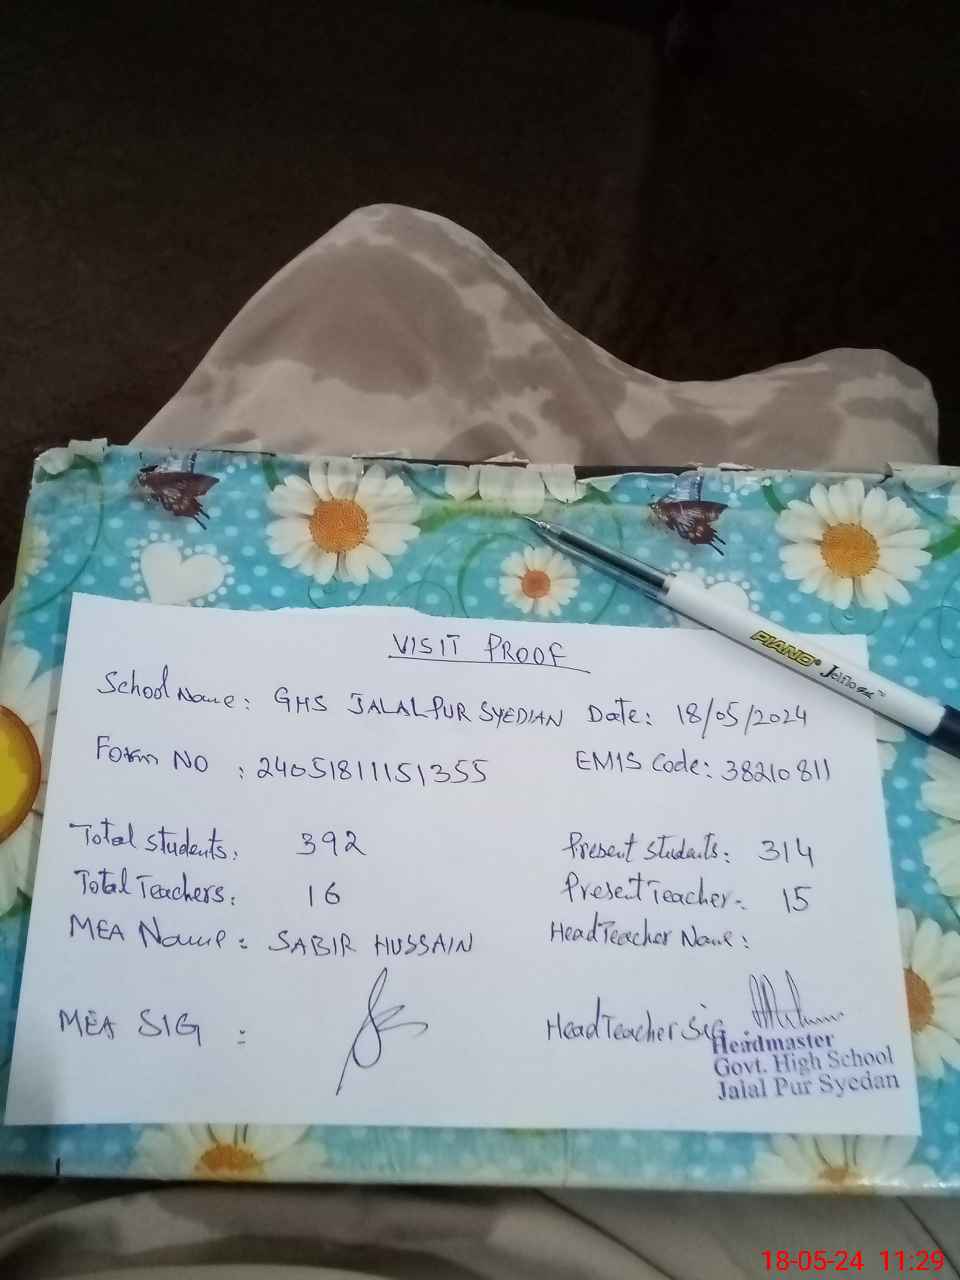 PIANO Jelflo Gel ™
VISIT PROOF
School Name: GHS JALALPUR SYEDIAN Date: 18/05/2024
Form NO : 24051811151355 EMIS Code: 38210811
Total students: 392 Present students: 314
Total Teachers: 16 Present Teacher: 15
MEA Name: SABIR HUSSAIN Head Teacher Name:
MEA SIG : Head Teacher Sig
Headmaster
Govt. High School
Jalal Pur Syedan
18-05-24 11:29